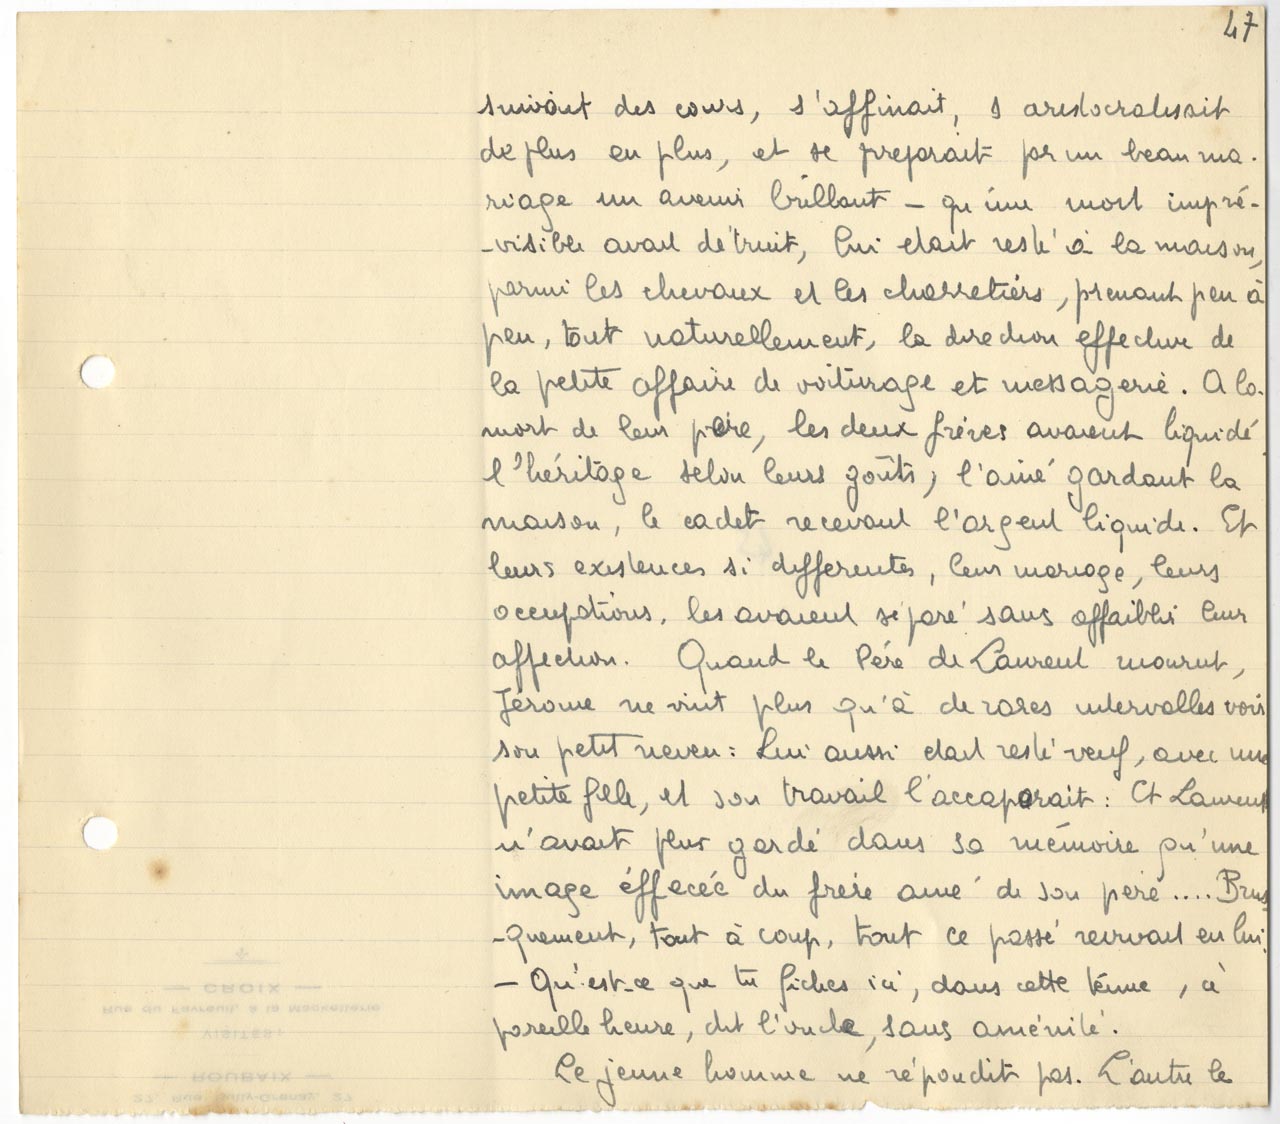 47
suivant des cours, s'affinait, s aristocratisait
de plus en plus, et se préparait par un beau ma-
riage un avenir brillant – qu'une mort impré-
-visible avait détruit, lui était resté à la maison,
parmi les chevaux et les charretiers, prenant peu à
peu, tout naturellement, la direction effective de
la petite affaire de voiturage et messagerie. A la
mort de leur père, les deux frères avaient liquidé
l'héritage selon leurs goûts, l'ainé gardant la
maison, le cadet recevant l'argent liquide. Et
leurs existences si differentes, leur mariage, leurs
occupations, les avaient séparé sans affaiblir leur
affection. Quand le Père de Laurent mourut,
Jérome ne vint plus qu'à de rares intervalles voir
son petit neveu : Lui aussi était resté veuf, avec une
petite fille, et son travail l'accaparait : Et Laurent
n'avait plus gardé dans sa mémoire qu'une
image éffacée du frère ainé de son père .... Brus
-quement, tout à coup, tout ce passé revivait en lui.
– Qu'est-ce que tu fiches ici, dans cette tenue, à
pareille heure, dit l'oncle, sans aménité.
Le jeune homme ne répondit pas. L'autre le
— CROIX —
Rue du Favreuil, à la Mackellerie
VISITES :
— ROUBAIX —
27, Rue Jully-Grenay, 27